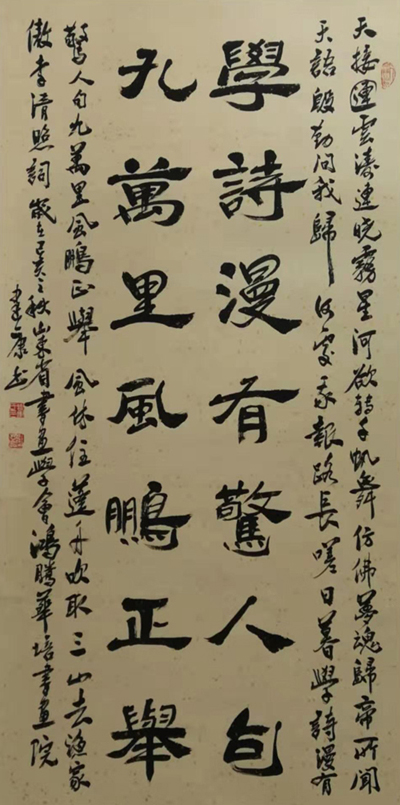 天接連雲濤連晓霧星河欲轉千帆舞仿佛夢魂歸帝所聞
天語殷勤問我歸何處我報路長嗟日暮學詩漫有
學詩漫有驚人句
九萬里風鵬正舉
驚人句九萬里風鵬正舉風休住蓬舟吹取三山去漁家
傲李清照詞歲在己亥之秋山東省書畫學會鴻騰華培書畫院
建康书